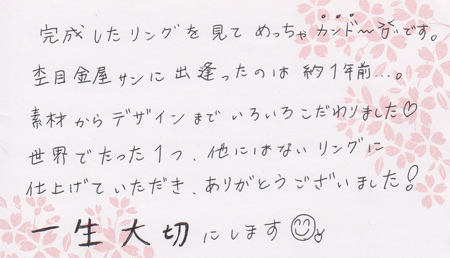 完成したリングを見てめっちゃカンド〜です。
杢目金屋サンに出逢ったのは約1年前…。
素材からデザインまでいろいろこだわりました♡
世界でたった1つ、他にはないリングに
仕上げていただき、ありがとうございました!
一生大切にします